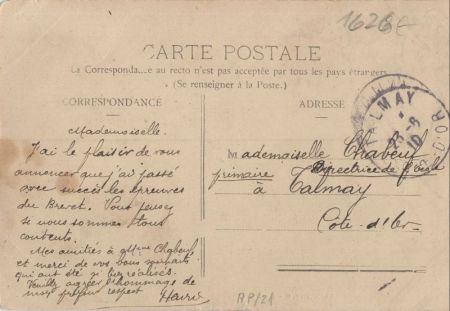 1626
CARTE POSTALE
La Correspondance au recto n'est pas acceptée par tous les pays étrangers
(Se renseigner à la Poste.)
CORRESPONDANCE
Mademoiselle.
J'ai le plaisir de vous
annoncer que j'ai passé
avec succès les épreuves
du Brevet. Vous pensez
si nous sommes tous
contents.
Mes amitiés à Mme Chabeuf
et merci de vos bons souhaits
qui ont été si bien réalisés.
Veuillez agréer l'hommage de
mon profond respect
Henri
ADRESSE
Mademoiselle Chabeuf
Directrice de l'École
primaire
à Talmay
Côte-d'Or
TALMAY
CÔTE D'OR